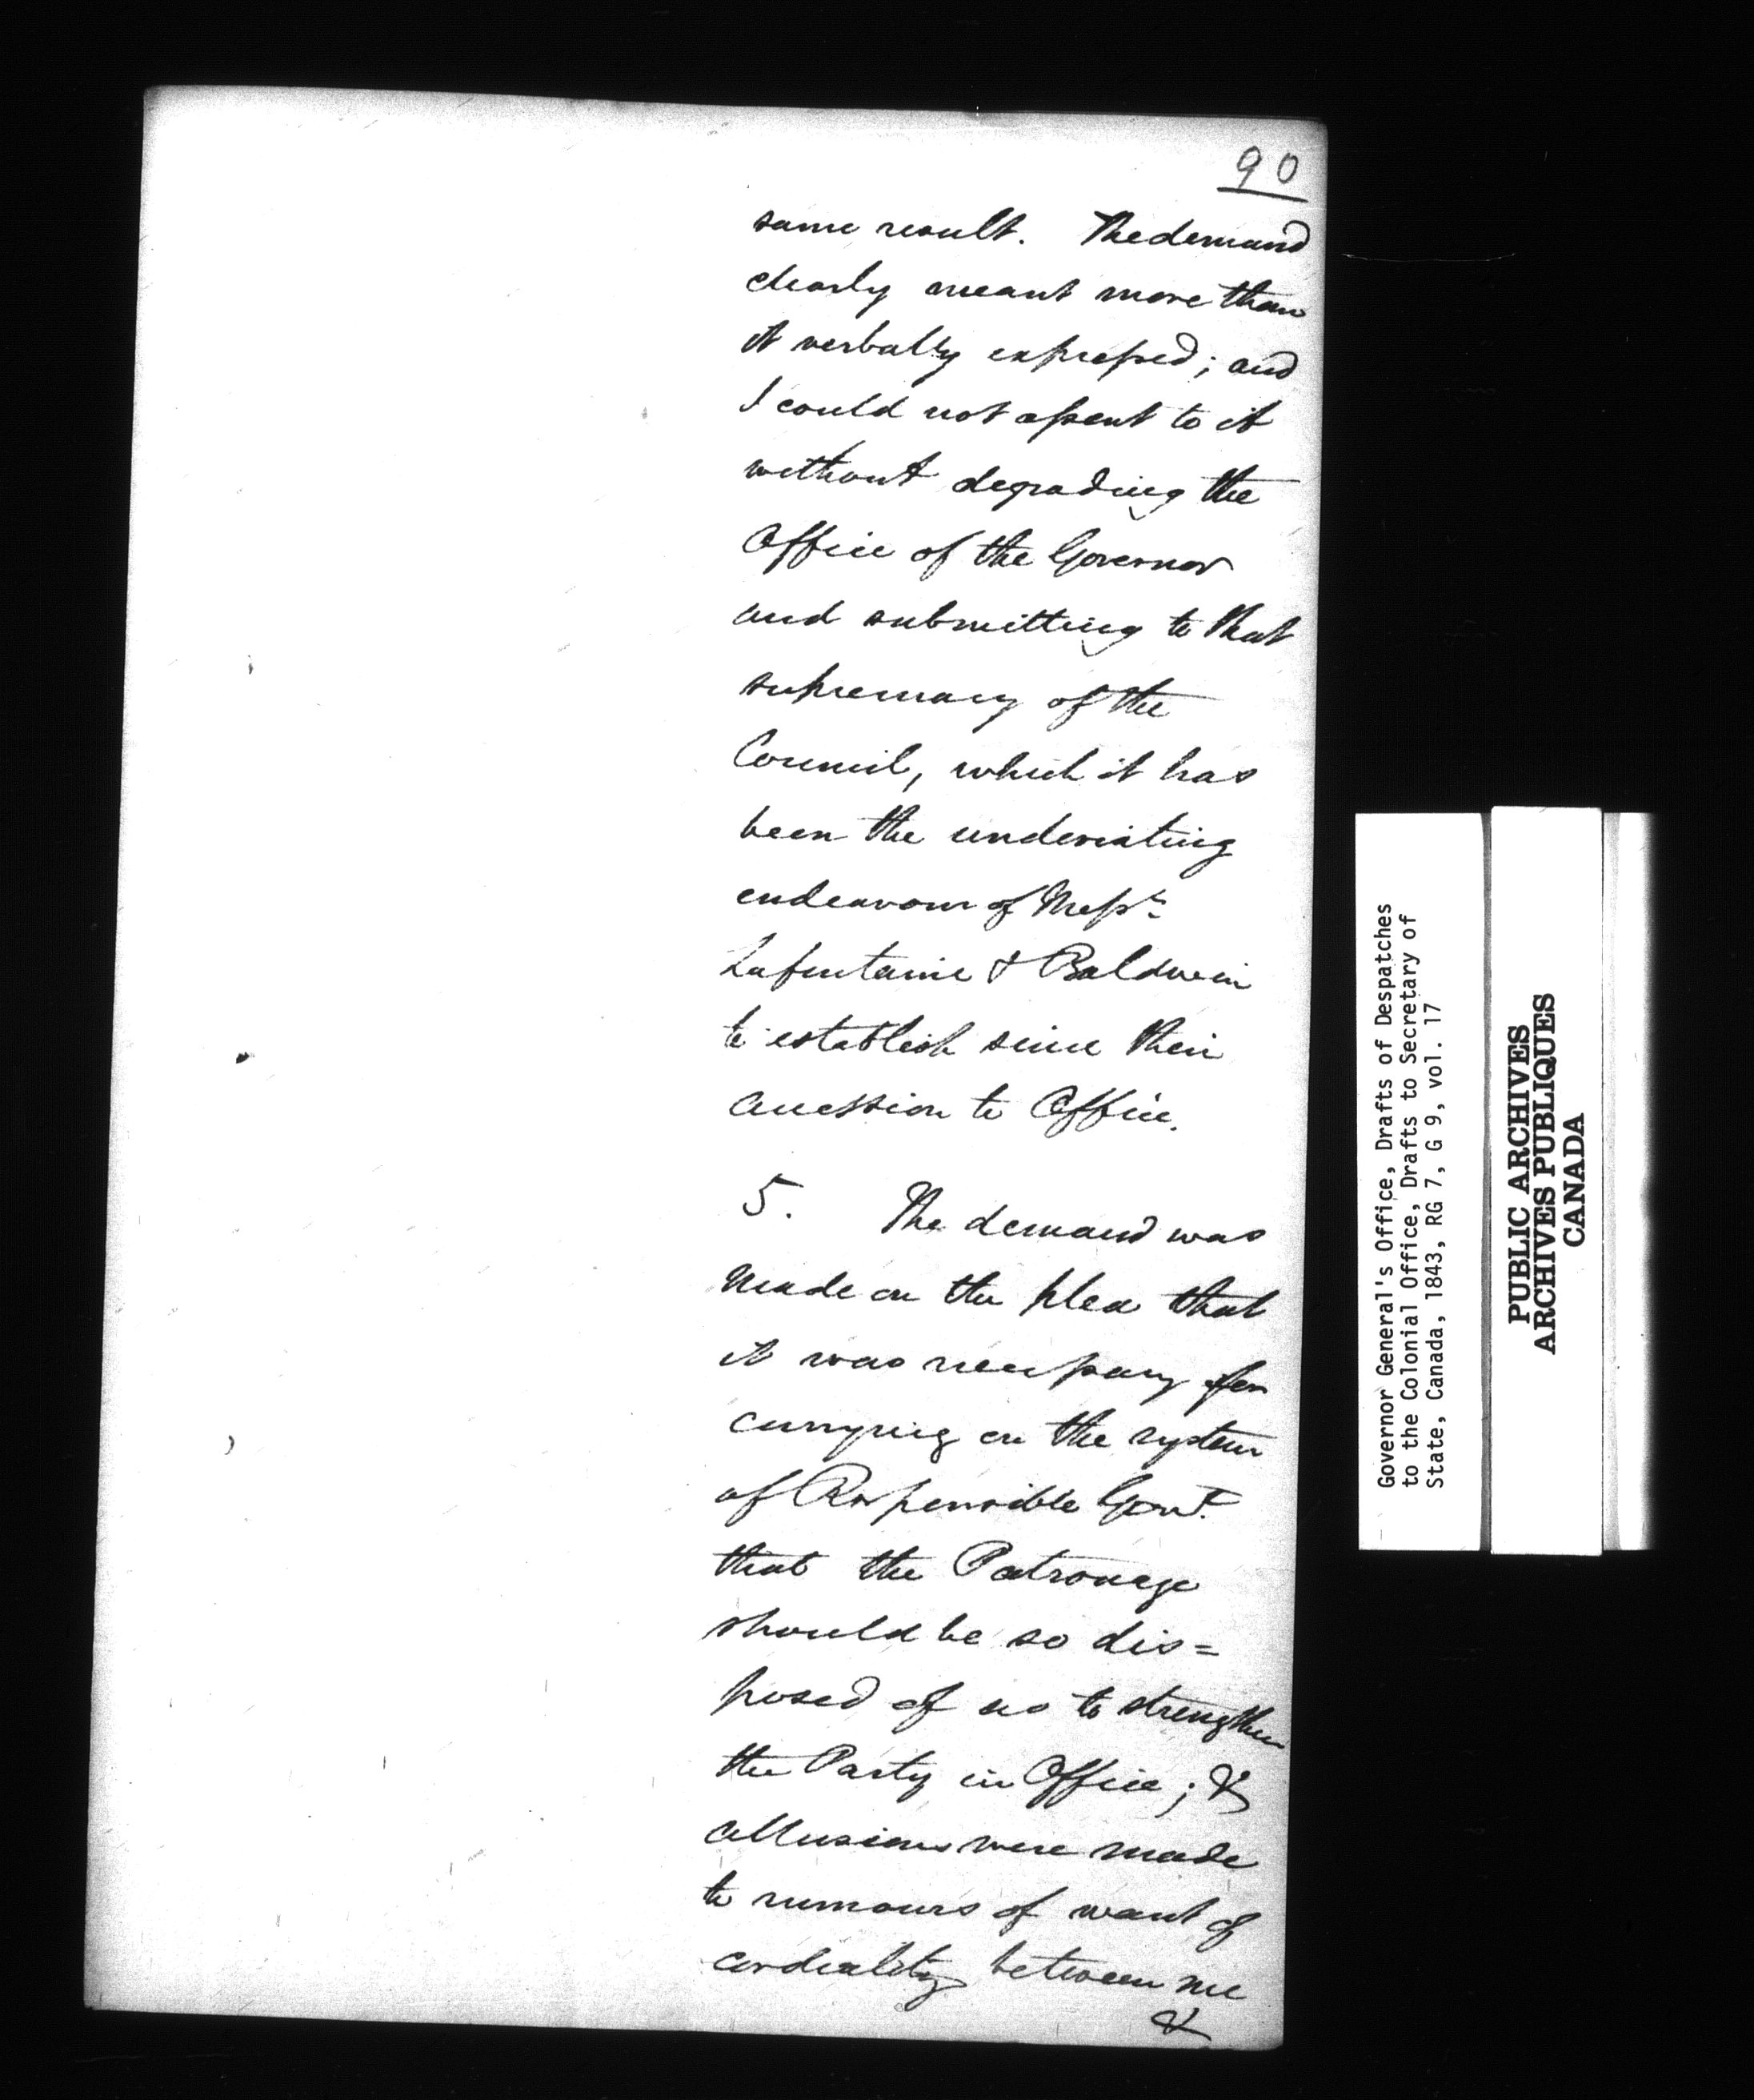 90
same result. The demand
clearly meant more than
it verbally expressed; and
I could not assent to it
without degrading the
Office of the Governor
and submitting to that
supremacy of the
Council, which it has
been the undeviating
endeavour of Messrs
Lafontaine & Baldwin
to establish since their
accession to Office.
5. The demand was
made on the plea that
it was necessary for
carrying on the system
of Responsible Govt.
that the Patronage
should be so dis=
posed of as to strengthen
the Party in Office; &
allusions were made
to rumours of want of
cordiality between me
&
Governor General's Office, Drafts of Despatches
to the Colonial Office, Drafts to Secretary of
State, Canada, 1843, RG 7, G 9, vol. 17
PUBLIC ARCHIVES
ARCHIVES PUBLIQUES
CANADA